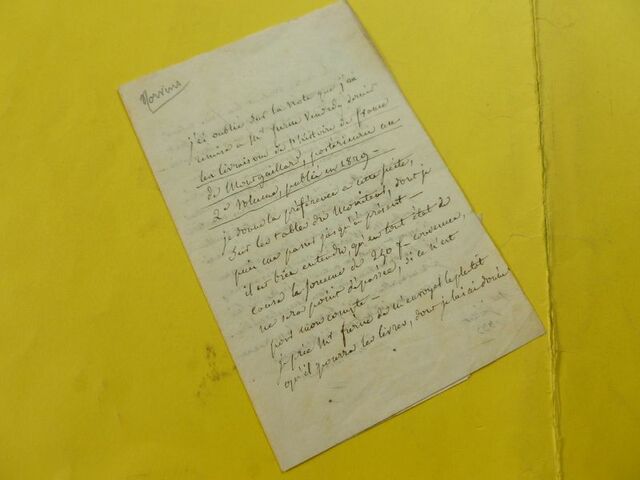 Norvins
j'ai oublié sur la note que j'ai
remise à Mr furne Vendredy dernier
les livraisons de l'histoire de france
de Montgaillard, postérieure au
2e Volume, publié en 1829 –
je donne la préférence a cette perte,
Sur les tables du Moniteur, dont je
puis me passer jusqu'à présent –
il est bien entendu, qu'en tout état de
cause la somme de 240 f. convenue,
ne sera point dépassée, si ce n'est
pour mon compte –
je prie Mr furne de m'envoyer le plutôt
qu'il pourra les livres, dont je lui ai donné